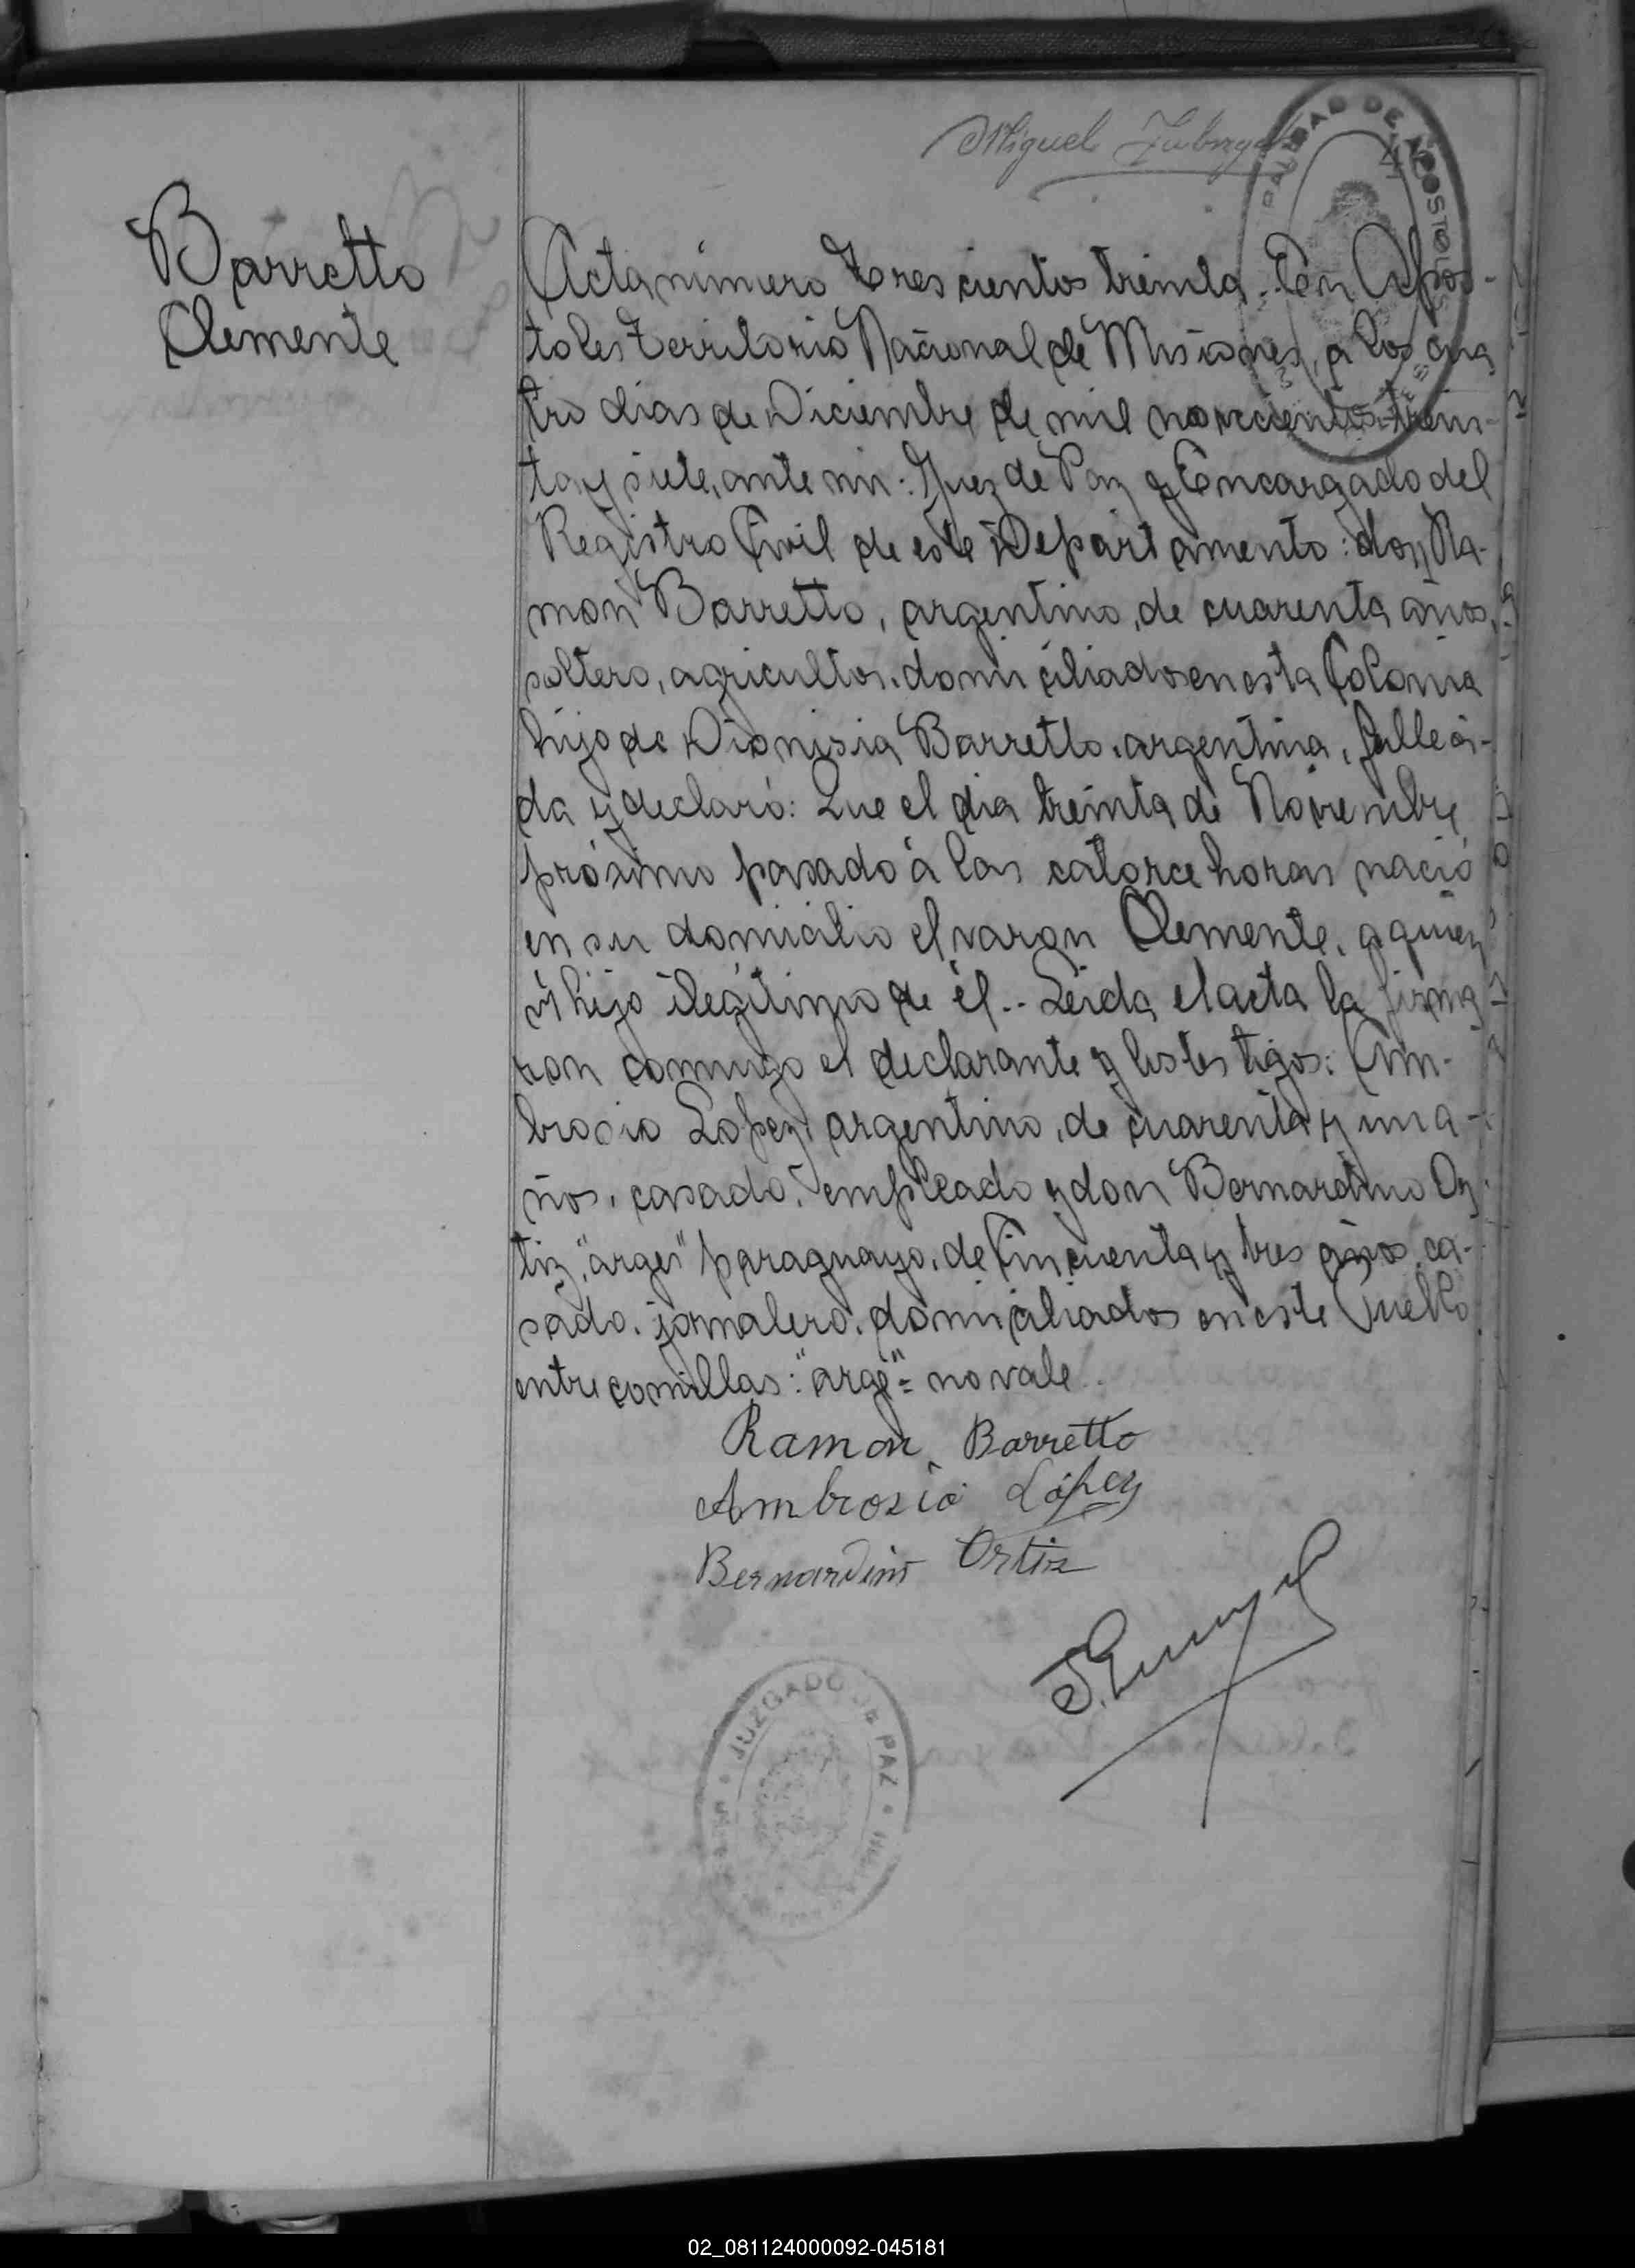 Miguel
DAD DE APOSTOLES
Barretto
Clemente
Acta número Trescientos treinta. En Após-
toles Territorio Nacional de Misiones, a los cua
tro dias de Diciembre de mil novecientos trein-
ta y siete, ante mi: Juez de Paz y Encargado del
Registro Civil de este Departamento: don Ra-
mon Barretto, argentino, de cuarenta años,
soltero, agricultor, domiciliados en esta Colonia
hijo de Dionisia Barretto, argentina, falleci-
da y declaró: Que el dia treinta de Noviembre
próximo pasado á las catorce horas nació
en su domicilio el varon Clemente, a quien
vi hijo ilegítimo de él.- Leida el acta la firma
ron conmigo el declarante y los testigos: Am-
brosio Lopez, argentino, de cuarenta y un a-
ños, casado, empleado y don Bernardino Or
tiz, "arge" paraguayo, de Cincuenta y tres años, ca-
sado, jornalero, domiciliados en este Pueblo
entre comillas: "arge"= no vale.
Ramon Barretto
Ambrosio López
Bernardino Ortiz
JUZGADO DE PAZ
02_081124000092-045181